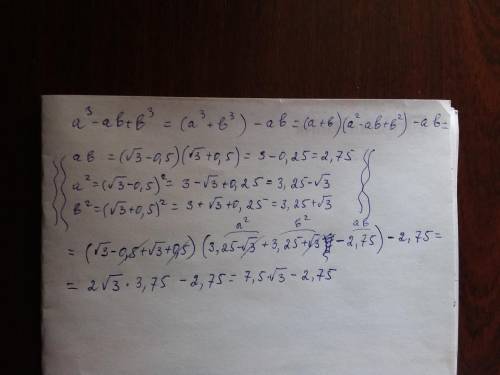 a³-ab+b³ = (a³+b³) - ab = (a+b)(a²-ab+b²) - ab =
ab = (√3-0,5)(√3+0,5) = 3-0,25 = 2,75
a² = (√3-0,5)² = 3-√3+0,25 = 3,25-√3
b² = (√3+0,5)² = 3+√3+0,25 = 3,25+√3
a² b² ab
= (√3-0,5+√3+0,5) (3,25-√3+3,25+√3 -2,75) - 2,75 =
= 2√3 · 3,75 - 2,75 = 7,5·√3 - 2,75